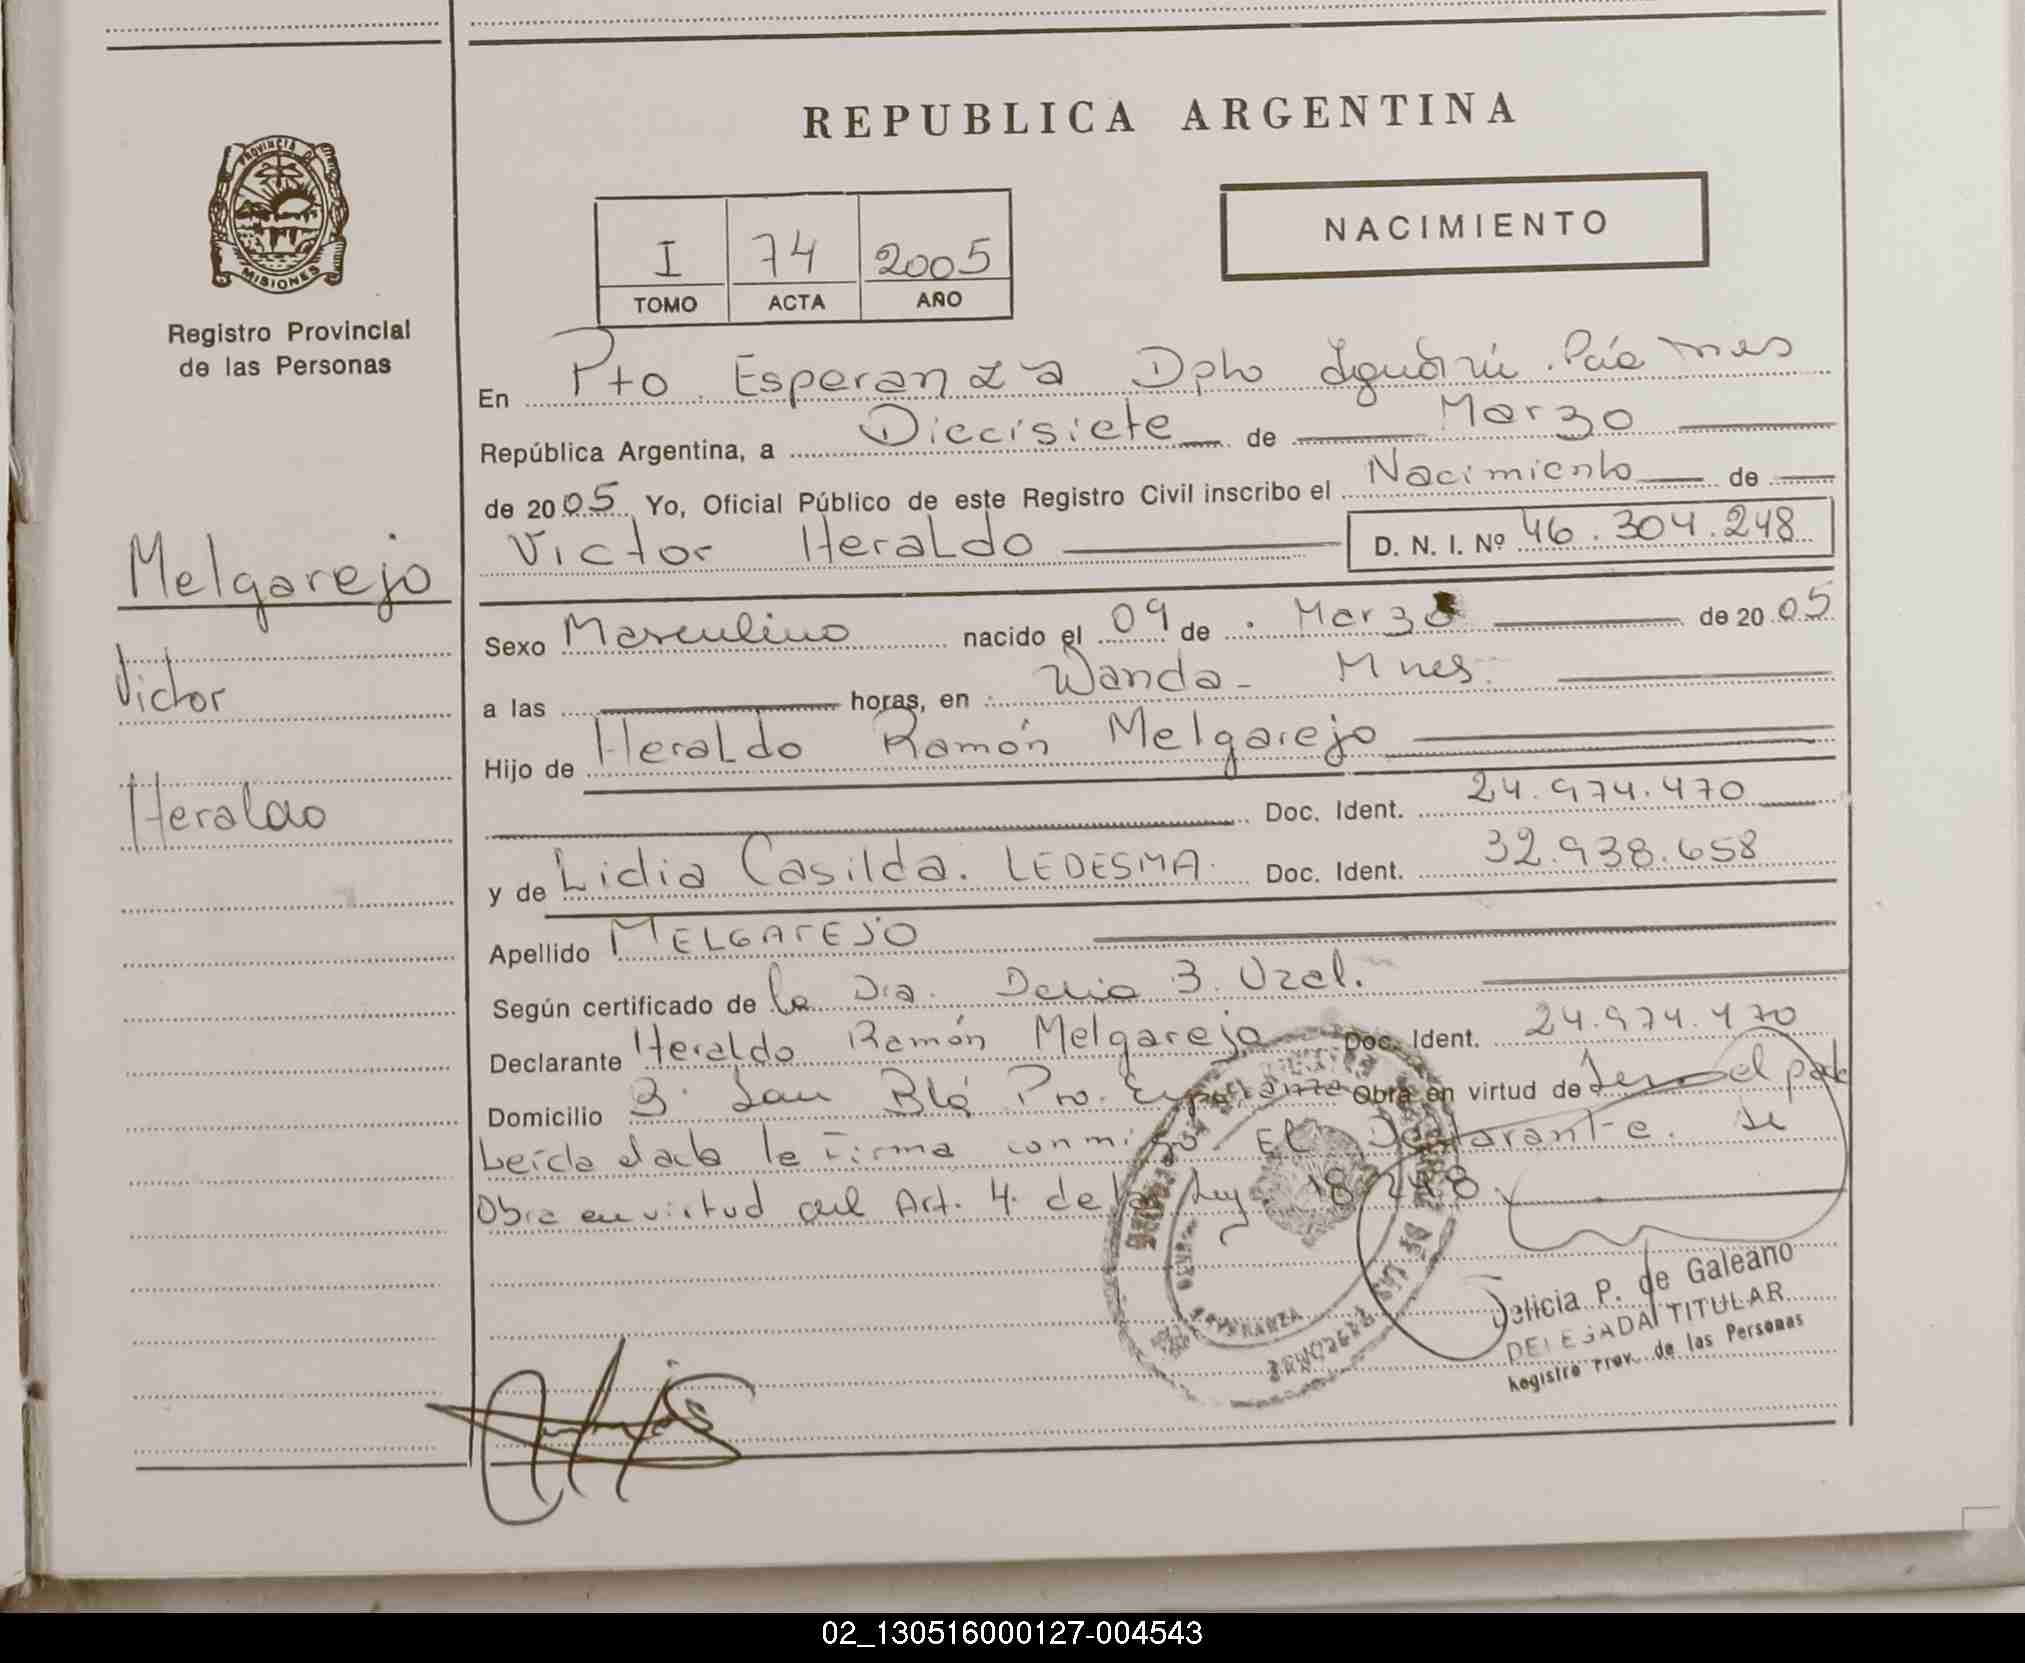 REPUBLICA ARGENTINA
PROVINCIA DE
MISIONES
Registro Provincial
de las Personas
NACIMIENTO
I 74 2005
TOMO ACTA AÑO
En Pto. Esperanza Dpto Iguazú
República Argentina, a Diecisiete de Marzo
de 2005 Yo, Oficial Público de este Registro Civil inscribo el Nacimiento de
Victor Heraldo D. N. I. Nº 46.304.248
Melgarejo
Victor
Heraldo
Sexo Masculino nacido el 09 de Marzo de 2005
a las horas, en Wanda - Mnes.
Hijo de Heraldo Ramón Melgarejo
Doc. Ident. 24.974.470
y de Lidia Casilda. LEDESMA. Doc. Ident. 32.938.658
Apellido MELGAREJO
Según certificado de la Dra. Delia B. Uzel.
Declarante Heraldo Ramón Melgarejo Doc. Ident. 24.974.470
Domicilio B. San Pto. Esperanza Obra en virtud de Ser el padre
Leída acta la Firma conmigo El Declarante. Se
Obra en virtud del Art. 4 de la Ley 18.248.
ESPERANZA
DE LAS PERSONAS
Delicia P. de Galeano
DELEGADA TITULAR
Registro Prov. de las Personas
02_130516000127-004543